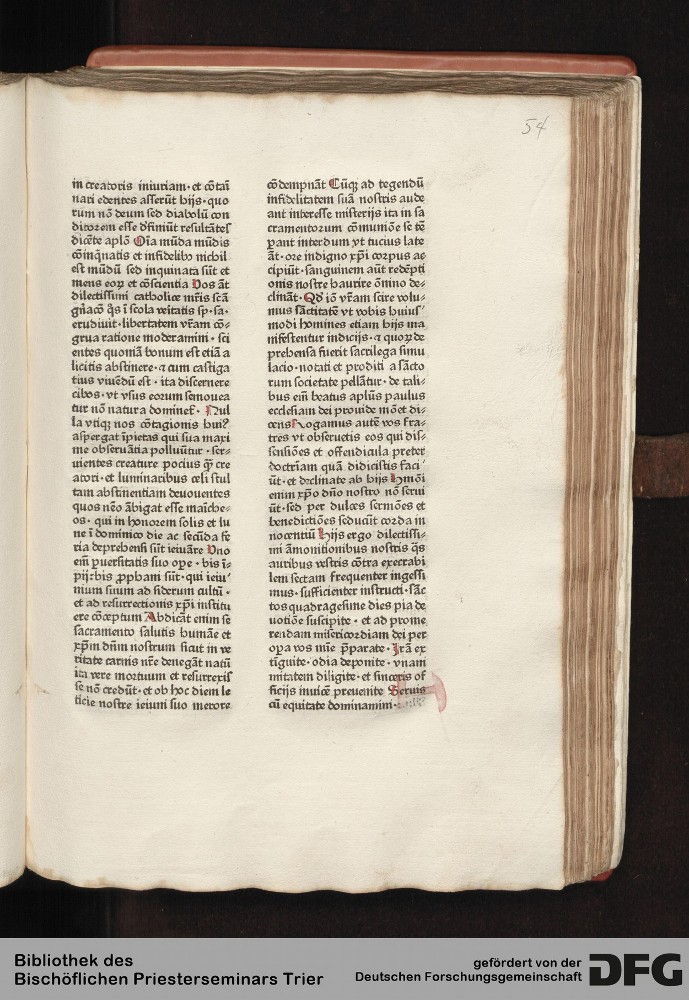 54
in creatoris iniuriam· et cōtai
nari edentes asserūt hijs· quo
rum nō deum sed diabolū con
ditorem esse dʼfiniūt resultātes
dicēte aplō Oīa mūda mūdis
coīnqͥnatis et infidelibꝫ nichil
est mūdū sed inquinata sūt et
mens eoꝝ et cōscientia Vos āt
dilectissimi catholice mr̄is scā
gn̄acō qͥs ī scola veitatis sp̄· sa·
erudiuit· libertatem vr̄am cō⸗
grua ratione moderamini· sci
entes quoniā bonum est etiā a
licitis abstinere· ⁊ cum castiga
tius viuēdū est · ita discernere
cibos· vt vsus eorum semouea
tur nō natura dominet᷑· Nul
la vtiqꝫ uos cōtagionis huiꝰ
aspergat īpietas qui sua maxi
me obseruātia polluūtur · ser⸗
uientes creature pocius qͣꝫ cre
atori· et luminaribus celi stul
tam abstinentiam deuouentes
quos nēo ābigat esse maīche⸗
os· qui in honorem solis et lu
ne ī dominico die ac secūda fe
ria deprehensi sūt ieiuāre Vno
em̄ ꝑuersitatis suo oꝑe · bis ī⸗
pij: bis ꝓphani sūt· qui ieiuʼ
nium suum ad siderum cultū ·
et ad resurrectionis xp̄i institu
ere cōceptum Abdicāt enim se
sacramento salutis humāe et
xp̄m dn̄m nostrum sicut in ve
ritate carnis nr̄e denegāt natū
ita vere mortuum et resurrexis
se nō credūt· et ob hoc diem le
ticie nostre ieiunī suo merore
cōdempnāt Cūqꝫ ad tegendū
infidelitatem suā nostris aude
ant interesse misterijs ita in sa
cramentorum cōmuniōe se tē
ꝑant interdum vt tucius late
āt· ore indigno xp̄i corpus ac
cipiūt· sanguinem aūt redēpti
onis nostre haurire ōnino de⸗
clināt· Qd̓ iō vr̄am scire volu⸗
mus sāctitatē vt vobis huiusʼ
modi homines etiam hijs ma
nifestentur indicijs· ⁊ quoꝝ de
prehensa fuerit sacrilega simu
lacio· notati et proditi a sācto
rum societate pellātur· de tali⸗
bus em̄ beatus aplūs paulus
ecclesiam dei prouide mōet di⸗
cens Rogamus autē vos fra⸗
tres vt obseruetis eos qui dis⸗
sensiōes et offendicula preter
doctrīam quā didicistis faciʼ
ūt· et declinate ab hijs Hmōi
enim xp̄o dn̄o nostro nō serui
ūt· sed per dulces sermōes et
benedictiōes seducūt corda in
nocentiū Hijs ergo dilectissi⸗
mi āmonitionibus nostris qͥs
auribus vestris cōtra execrabi
lem sectam frequenter ingessi
mus· sufficienter instructi· sāc
tos quadragesime dies pia de
uotiōe suscipite · et ad prome
rendam misericordiam dei per
oꝑa vos mīe p̄parate· Irā ex
tīguite· odia deponite· vnani
mitatem diligite· et sinceris of
ficijs inuicē preuenite Seruis
cū equitate dominamini·
Bibliothek des
Bischöflichen Priesterseminars Trier
gefördert von der
Deutschen Forschungsgemeinschaft
DFG